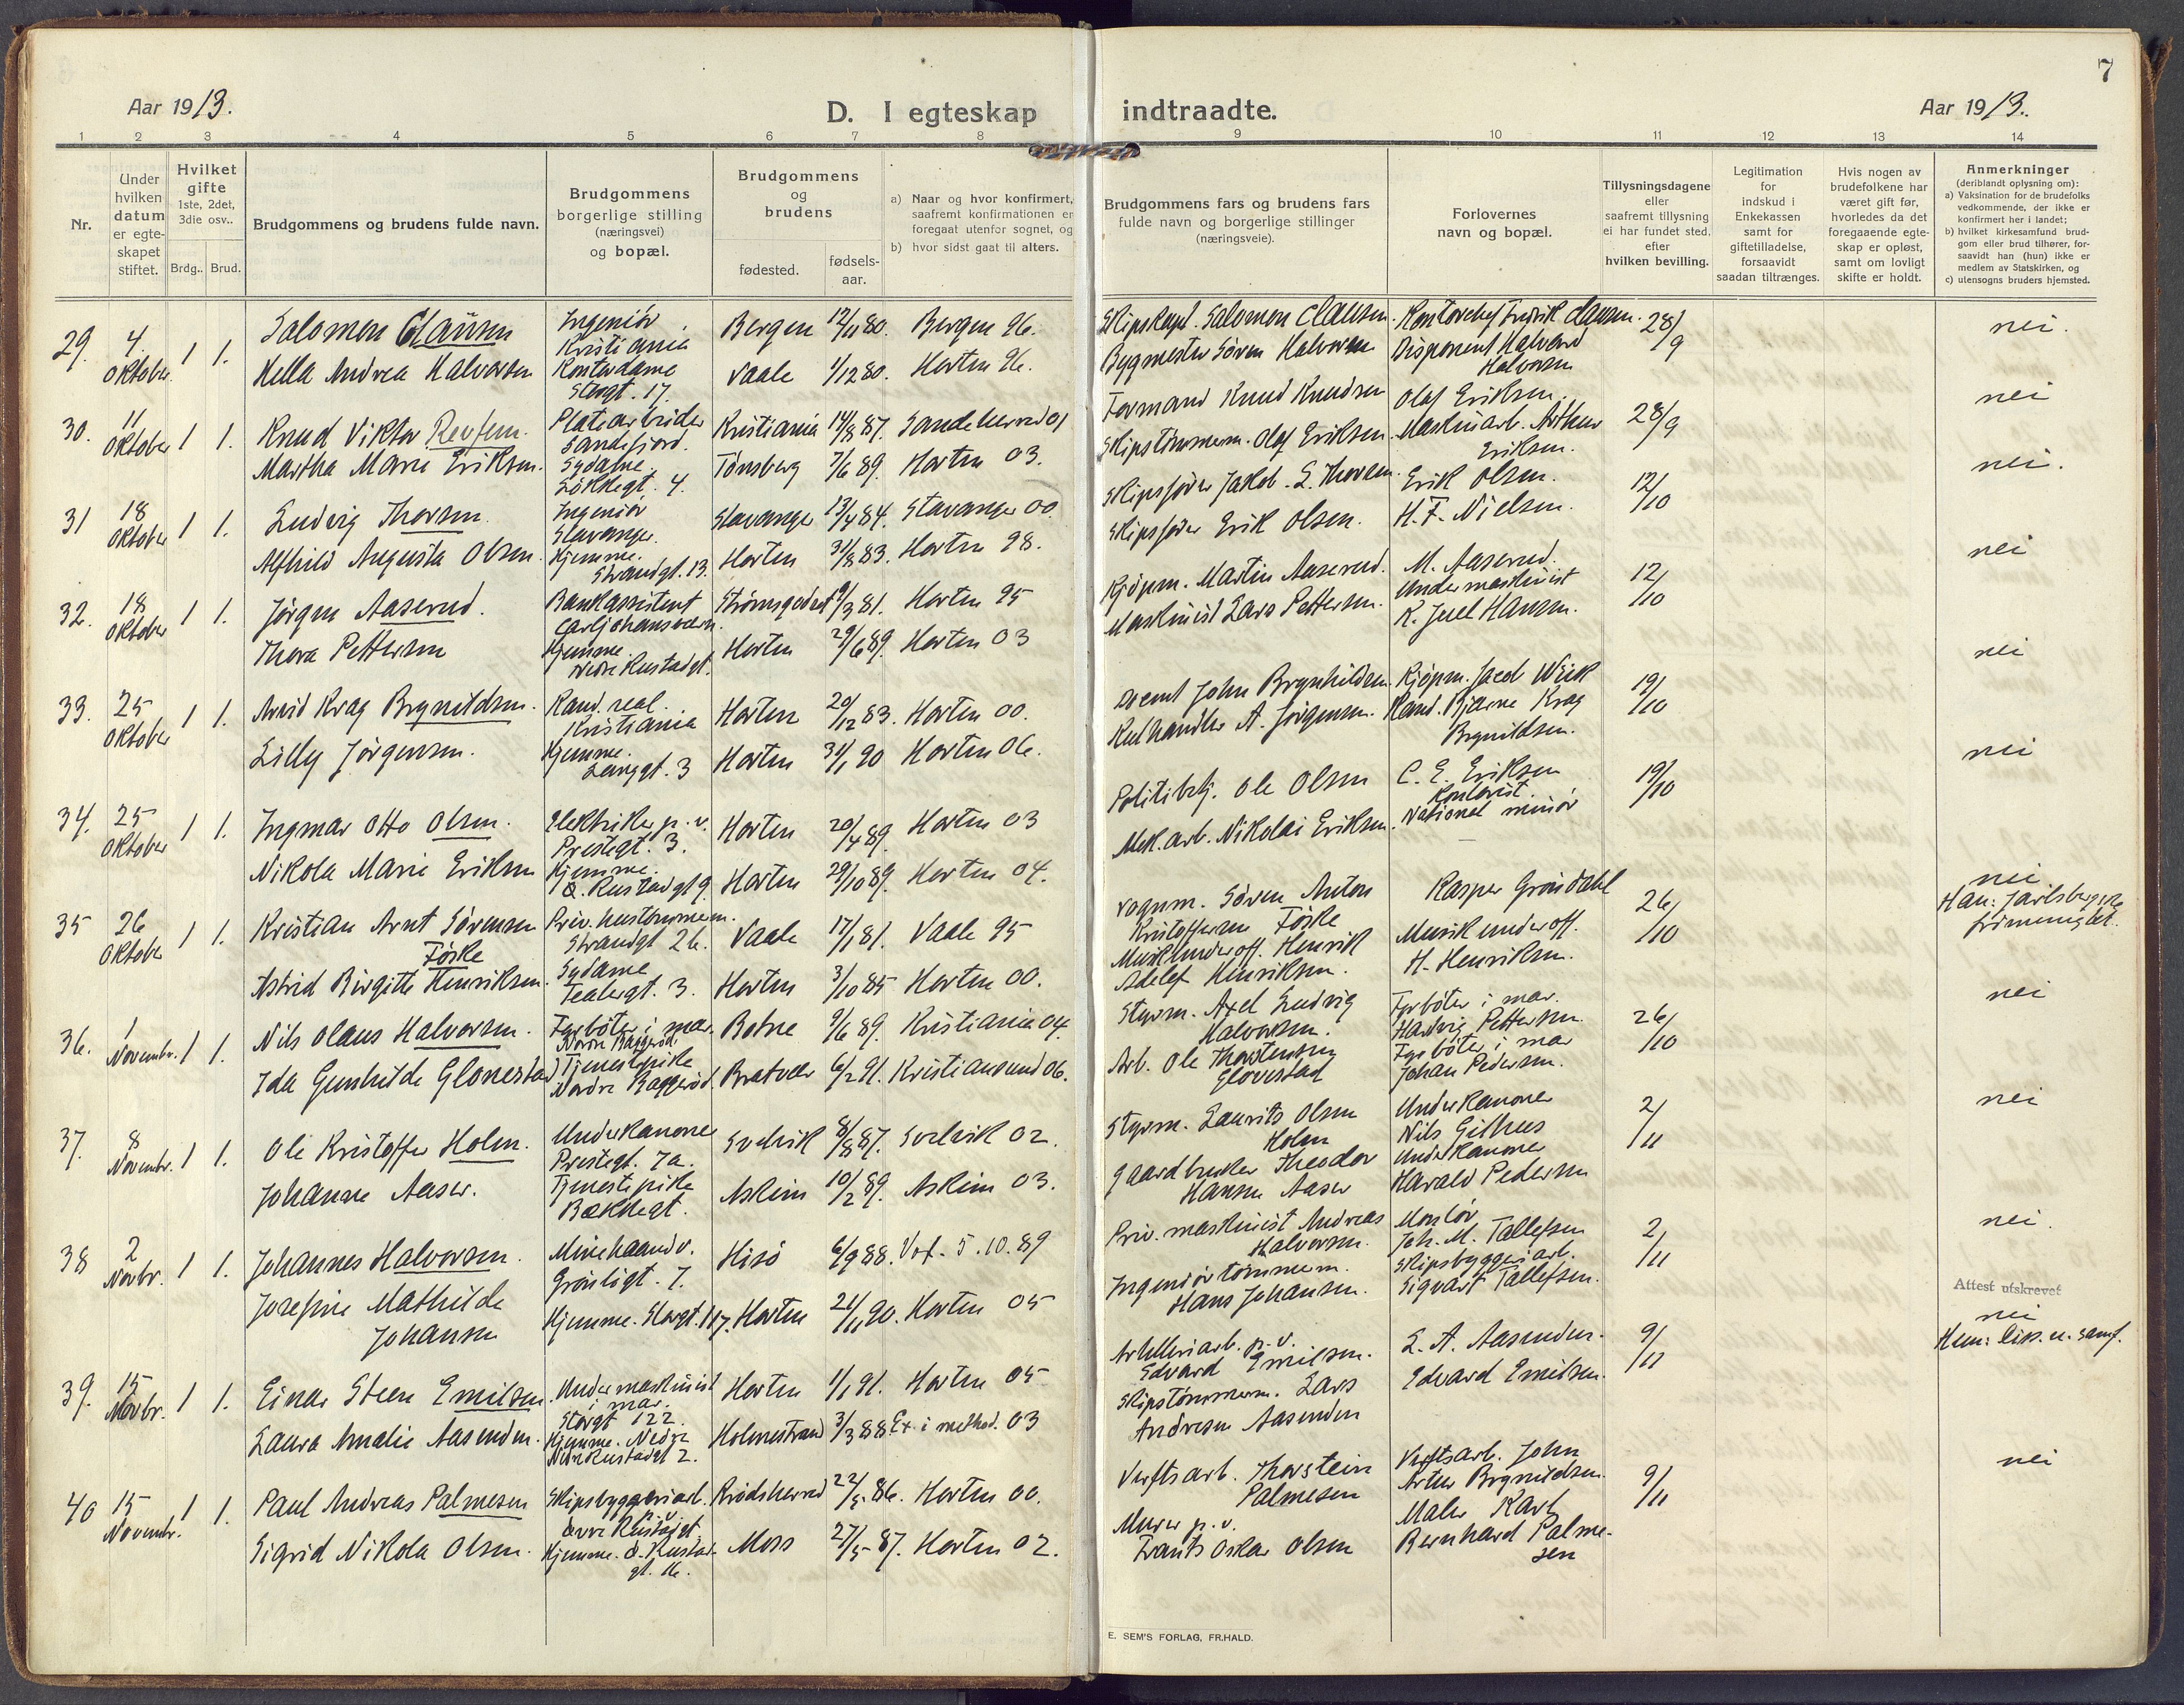 7
Aar 1913.
D. I egteskap indtraadte.
Aar 1913.
1 2 3 4 5 6 7 8 9 10 11 12 13 14
Nr.
Under hvilken datum er egte-skapet stiftet.
Hvilket gifte 1ste, 2det, 3die osv..
Brdg.. Brud.
Brudgommens og brudens fulde navn.
Brudgommens borgerlige stilling (næringsvei) og bopæl.
Brudgommens og brudens
fødested.
fødsels-aar.
a) Naar og hvor konfirmert, saafremt konfirmationen er foregaat utenfor sognet, og
b) hvor sidst gaat til alters.
Brudgommens fars og brudens fars fulde navn og borgerlige stillinger (næringsveie).
Forlovernes navn og bopæl.
Tillysningsdagene eller saafremt tillysning ei har fundet sted, efter hvilken bevilling.
Legitimation for indskud i Enkekassen samt for giftetilladelse, forsaavidt saadan tiltrænges.
Hvis nogen av brudefolkene har været gift før, hvorledes da det foregaaende egte-skap er opløst, samt om lovligt skifte er holdt.
Anmerkninger (deriblandt oplysning om):
a) Vaksination for de brudefolks vedkommende, der ikke er konfirmert her i landet;
b) hvilket kirkesamfund brud-gom eller brud tilhører, for-saavidt han (hun) ikke er medlem av Statskirken, og
c) utensogns bruders hjemsted.
29. 4. Oktober. 1 1. Salomon Clausen Ingeniör Kristiania Bergen 12/11 80. Bergen 96. Skipskapt. Salomon Clausen. Kontorchef Fredrik Clausen. 28/9 nei.
Hella Andrea Halvorsen Kontordame Storgt. 17. Vaale 1/12 80. Horten 96. Bygmester Sören Halvorsen Disponent Halvard Halvorsen
30. 11 Oktober 1 1. Knud Viktor Revfem. Platearbeider Sandefjord. Kristiania 14/8 87. Sandeherred 01 Formand Knud Knudsen Olaf Eriksen 28/9 nei
Martha Marie Eriksen. Sydame. Tönsberg 7/6 89. Horten 03. Skipstömmerm. Olaf Eriksen. Maskinarb. Arthur Eriksen.
31 18 Oktober 1 1. Ludvig Thorsen. Ingeniör Stavanger. Stavanger 13/4 84. Stavanger 00. Skipsförer Jakob. S. Thorsen. Erik Olsen. 12/10 nei.
Alfhild Augusta Olsen. Hjemme. Strandgt. 13. Horten 31/8 83. Horten 98. Skipsförer Erik Olsen. H. F. Nielsen.
32. 18 Oktober 1 1. Jörgen Aaserud. Bankassistent Carljohansværn. Strömsgodset 9/3 81. Horten 95 Kjöpm. Martin Aaserud. M. Aaserud. 12/10 nei
Thora Pettersen Hjemme. Nedre Rustadgt. Horten 29/6 89. Horten 03 Maskinist Lars Pettersen. Undermaskinist K. Juel Hansen.
33. 25 Oktober 1 1. Arvid Krag Brynildsen. Kand. real. Kristiania Horten 20/12 83. Horten 00. John Brynhildsen. Kjöpm. Jacob Wiik 19/10 nei
Lilly Jörgensen. Hjemme. Langgt. 3 Horten 31/1 90 Horten 06. Kulhandler A. Jörgensen. Kand. Bjarne Krag Brynildsen.
34. 25 Oktober 1 1. Ingmar Otto Olsen. Elektriker p. v. Prestegt. 3. Horten 20/4 89. Horten 03 Politibetj. Ole Olsen C. E. Eriksen Kontorist. 19/10 nei
Nikola Marie Eriksen Hjemme. Ö. Rustadgt 9. Horten 29/10 89. Horten 04. Mek. arb. Nikolai Eriksen. National minör
35 26 Oktober 1 1. Kristian Arnt Sörensen Föske Priv. hustömmerm. Strandgt 26. Vaale 17/1 81. Vaale 95 Vognm. Sören Anton Kristoffersen Föske Kasper Gröndahl 26/10 nei Han: Jarlsbergske frimenighet.
Astrid Birgitte Henriksen. Sydame Teatergt. 3. Horten 3/10 85 Horten 00. Musikunderoff. Henrik Adelef Henriksen. Musikunderoff. H. Henriksen.
36. 1 Novembr. 1 1. Nils Olaus Halvorsen. Fyrböter i mar. Nordre Baggeröd. Botne 9/6 89. Kristiania 04. Styrm. Axel Ludvig Halvorsen. Fyrböter i mar. Hartvig Pettersen. 26/10 nei
Ida Gunhilde Glonestad Tjenestepike Nordre Baggeröd. Bratvær 6/2 91. Kristiansund 06. Arb. Ole Thorstensen Glovestad Fyrböter i mar Johan Pedersen.
37. 8 Novembr. 1 1. Ole Kristoffer Holm. Underkanoner Prestegt. 7a. Svelvik 8/8 87. Svelvik 02. Styrm. Laurits Olsen Holm Underkanoner Nils Githus 2/11 nei
Johanne Aaser. Tjenestepike Bakkegt. Askim 10/2 89. Askim 03. Gaardbruker Theodor Hansen Aaser Underkanoner Harald Pedersen
38 2 Novbr. 1 1. Johannes Halvorsen. Minehaandv. Grönligt. 7. Hisö 6/9 88. Vox. 5.10.89 Priv. maskinist Andreas Halvorsen. Montör Joh. M. Tallefsen 2/11 nei.
Josefine Mathilde Johansen Hjemme. Storgt. 117. Horten 21/11 90. Horten 05 Ingeniörtömmerm. Hans Johansen. Skipsbyggeriarb. Sigvart Tallefsen. Attest utskrevet
39. 15 Novbr. 1 1. Einar Steen Emilsen Undermaskinist i mar. Storgt 122. Horten 1/1 91. Horten 05 Artilleriarb. p. v. Edvard Emilsen. L. A. Aasenden. 9/11 nei
Laura Amalie Aasenden. Hjemme. Nedre Rustadgt 2. Holmestrand 3/3 88 Ex. i method. 03 Skipstömmerm. Lars Andresen Aasenden Edvard Emilsen.
40 15 Novembr. 1 1. Paul Andreas Palmesen Skipsbyggeriarb. p. v. övre Rustadgt. Krödsherred 22/5 86. Horten 00. Verftsarb. Thorstein Palmesen Verftsarb. John Artur Brynildsen. 9/11 nei
Sigrid Nikola Olsen. Hjemme. ö. Rustadgt. 16. Moss 27/5 87. Horten 02. Murer p. v. Frants Oskar Olsen Maler Karl Bernhard Palmesen
E. SEM'S FORLAG, FR.HALD.